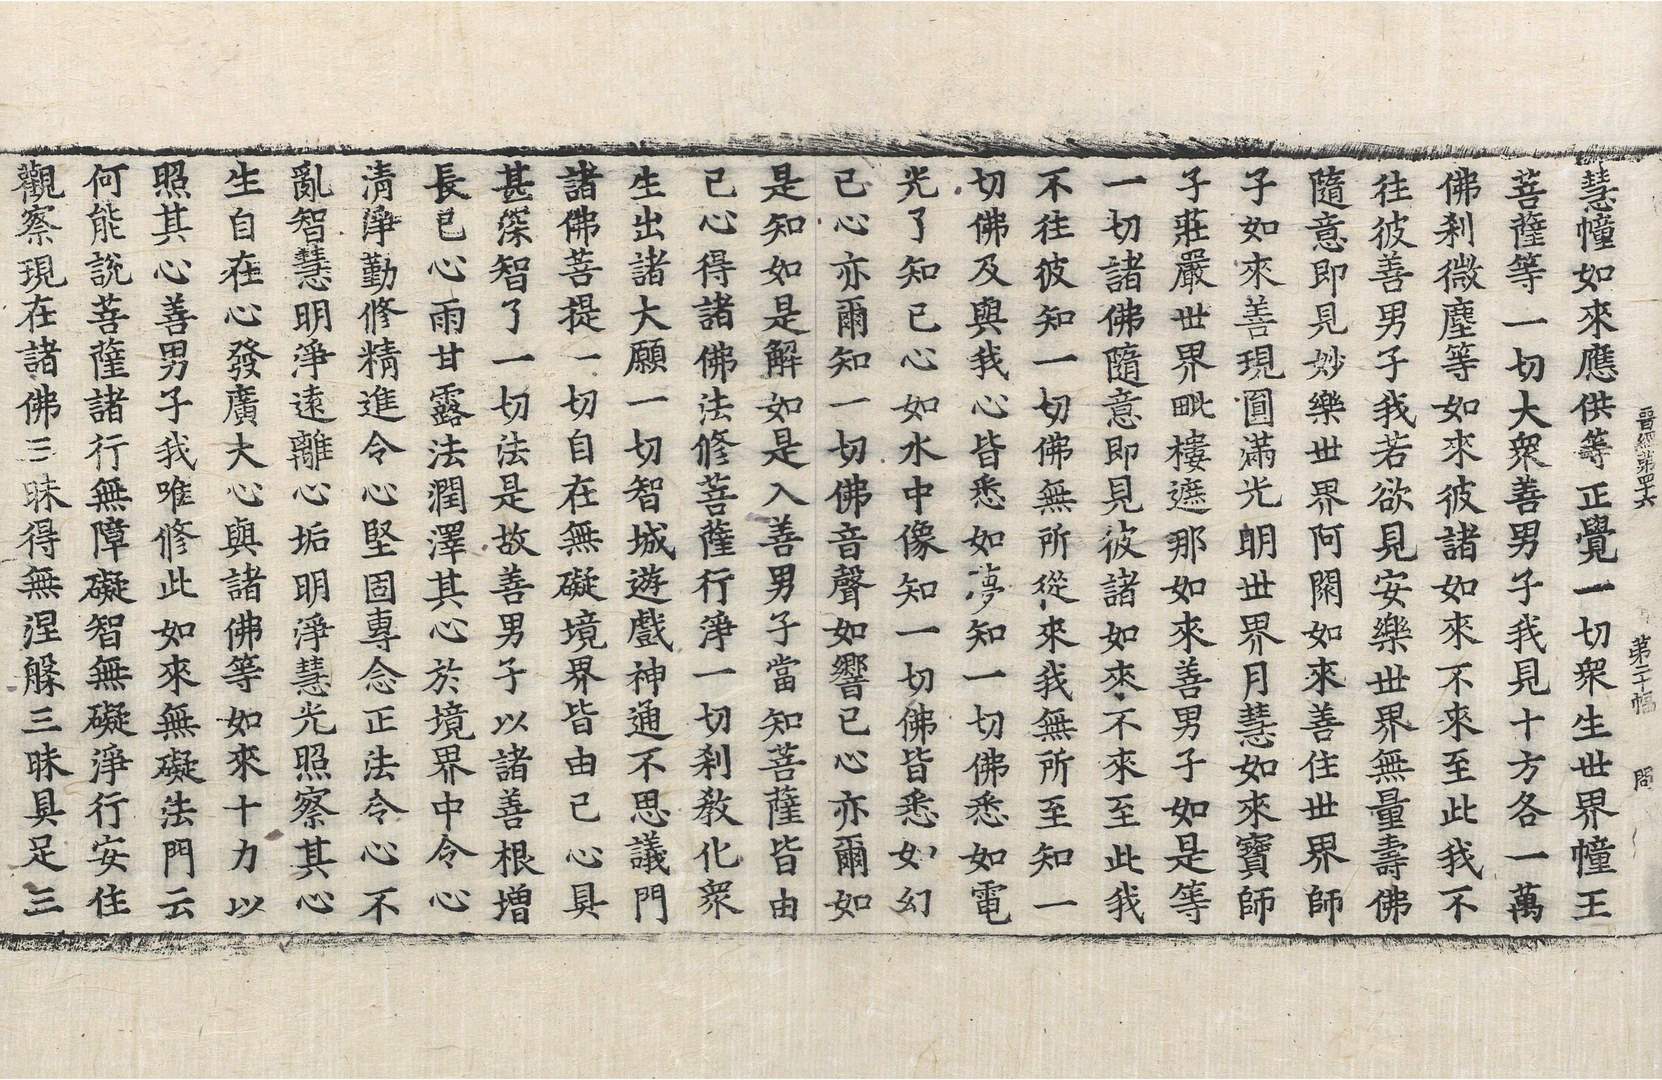 晉經第四六 第二十幅 問
慧幢如來應供等正覺一切衆生世界幢王
菩薩等一切大衆善男子我見十方各一萬
佛刹微塵等如來彼諸如來不來至此我不
往彼善男子我若欲見安樂世界無量壽佛
隨意即見妙樂世界阿閦如來善住世界師
子如來善現圓滿光明世界月慧如來寶師
子莊嚴世界毗樓遮那如來善男子如是等
一切諸佛隨意即見彼諸如來不來至此我
不往彼知一切佛無所從來我無所至知一
切佛及與我心皆悉如夢知一切佛悉如電
光了知己心如水中像知一切佛皆悉如幻
己心亦爾知一切佛音聲如響己心亦爾如
是知如是解如是入善男子當知菩薩皆由
己心得諸佛法修菩薩行淨一切刹教化衆
生出諸大願一切智城遊戲神通不思議門
諸佛菩提一切自在無礙境界皆由己心具
甚深智了一切法是故善男子以諸善根增
長己心雨甘露法潤澤其心於境界中令心
清淨勤修精進令心堅固專念正法令心不
亂智慧明淨遠離心垢明淨慧光照察其心
生自在心發廣大心與諸佛等如來十力以
照其心善男子我唯修此如來無礙法門云
何能說菩薩諸行無障礙智無礙淨行安住
觀察現在諸佛三昧得無涅槃三昧具足三